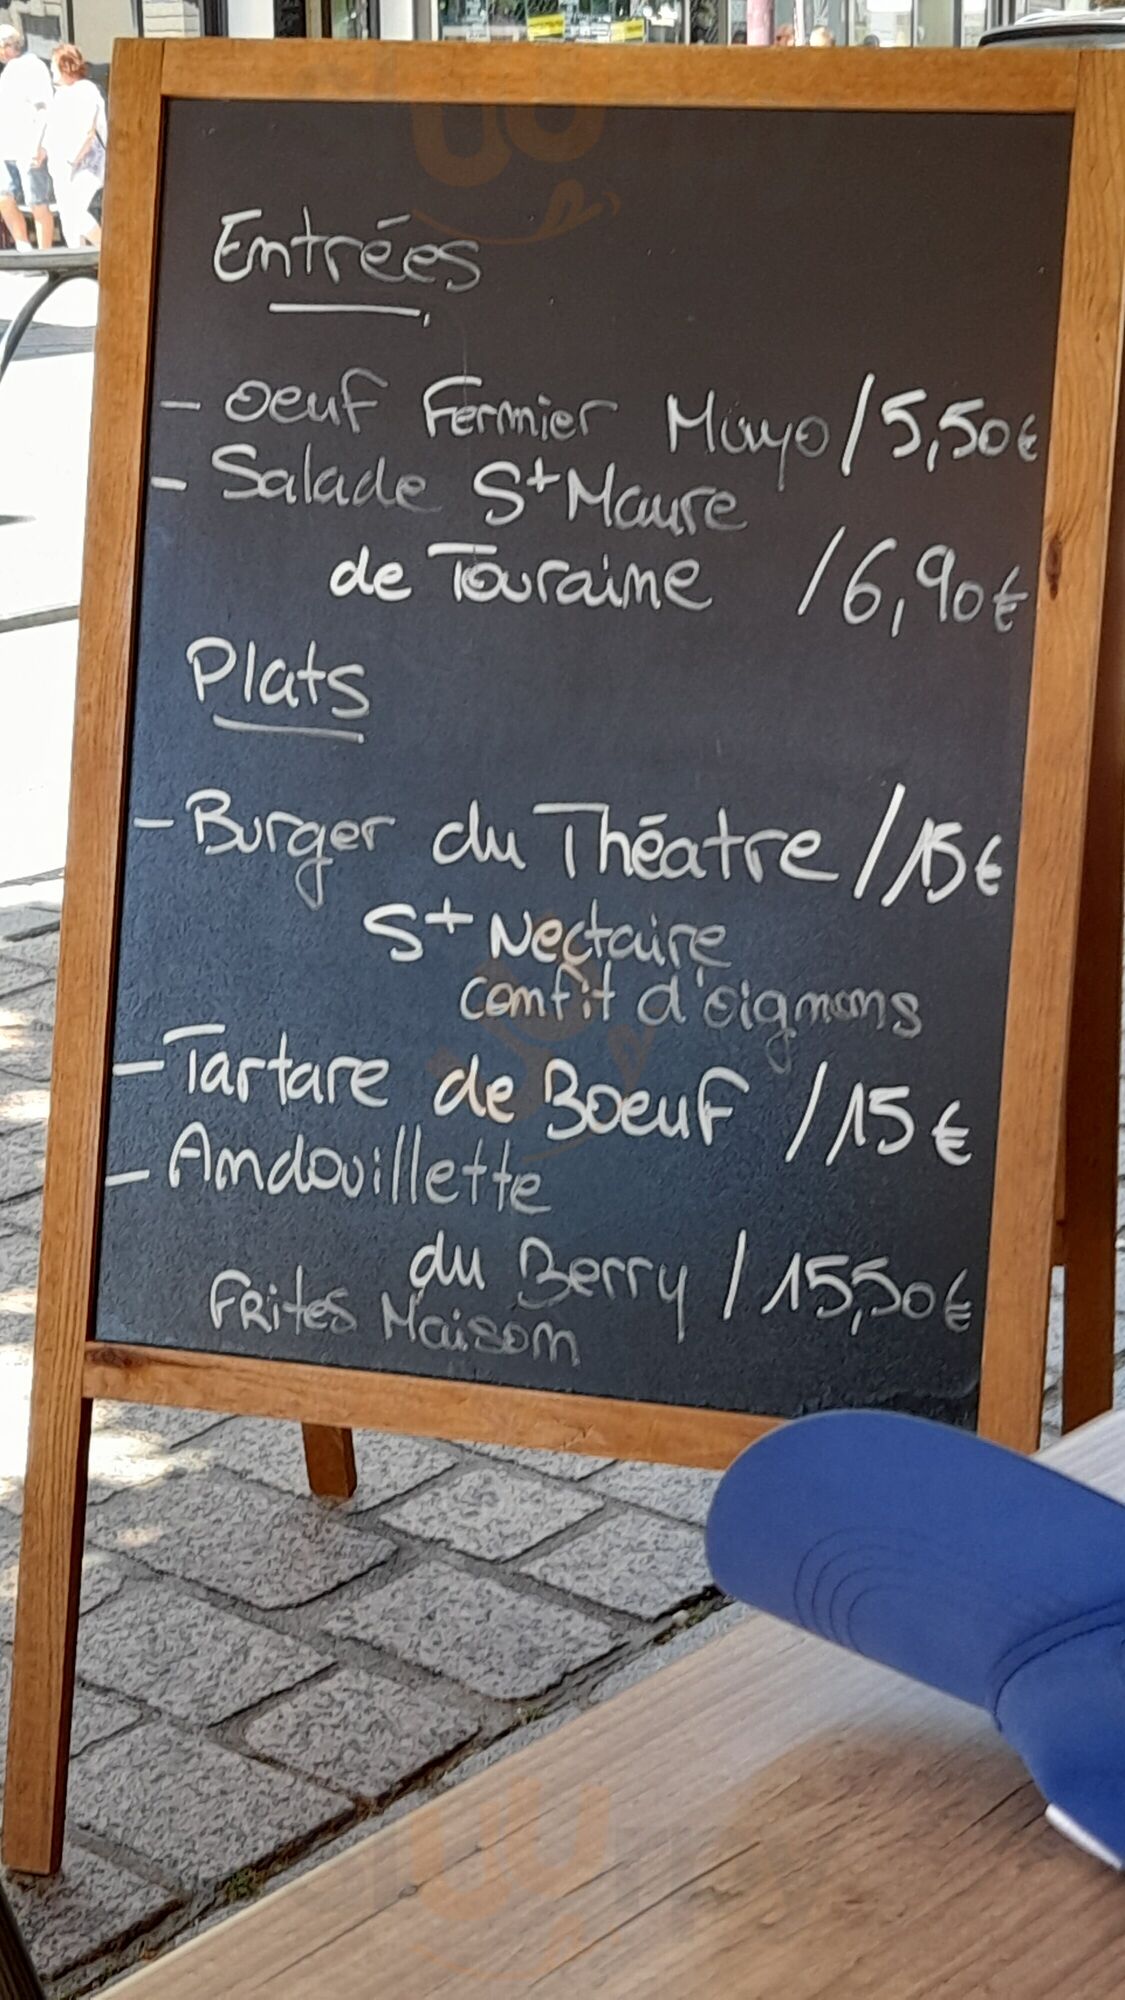 Entrées
- oeuf Fermier Mayo / 5,50€
- Salade St Maure
de Touraine / 6,90€
Plats
- Burger du Théatre / 15€
St Nectaire
confit d'oignons
- Tartare de Boeuf / 15€
- Andouillette
du Berry / 15,50€
Frites Maison